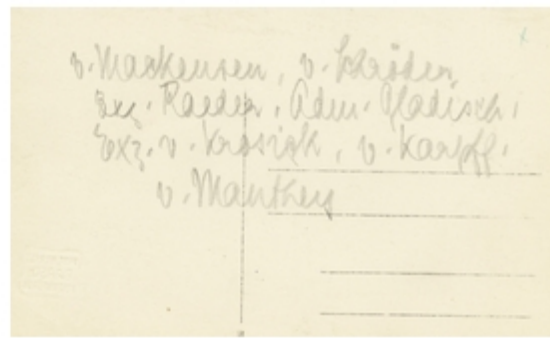 v. Mackensen, v. Schröder,
Exz. Raeder, Adm. Gladisch,
Exz. v. Krosigk, v. Karpff,
v. Manthey